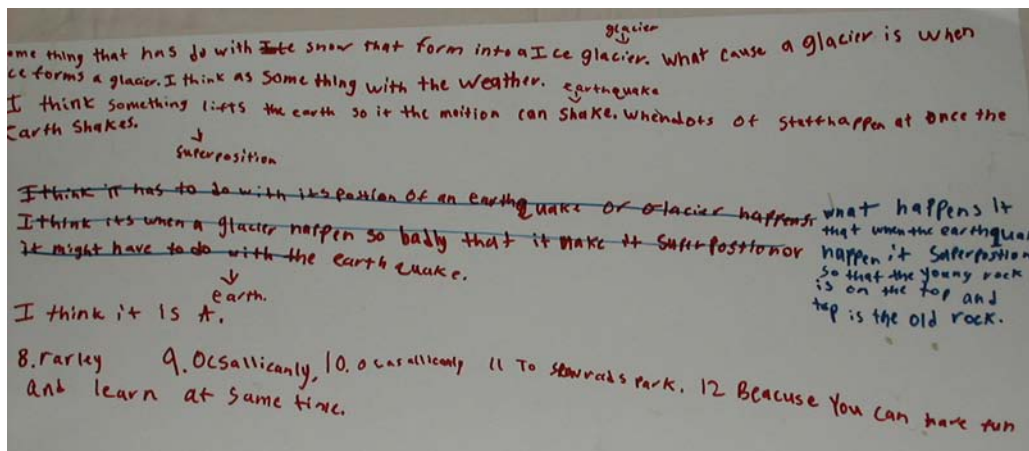 glacier
ome thing that has do with snow that form into a Ice glacier. what cause a glacier is when
ce forms a glacier. I think as some thing with the weather. earthquake
I think something lifts the earth so it the moition can shake. when dots of happen at once the
Earth Shakes.
superposition
I think it has to do with its postion of an earthquake or Glacier happens.
I think its when a glacier happen so badly that it make it superpostion or
it might have to do with the earth quake.
what happens It
that when the earthqual
happen it superpostion
so that the young rock
is on the top and
top is the old rock.
earth.
I think it is A.
8. rarley 9. Ocsallicanly, 10. ocasallicanly 11 To park. 12 Beacuse You can have fun
and learn at same time.